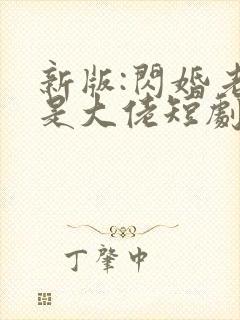 新版:閃婚老
是大佬短劇
丁肇中